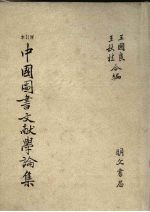 增訂本
中國圖書文献學論集
王國良
王秋桂 合編
明文書局